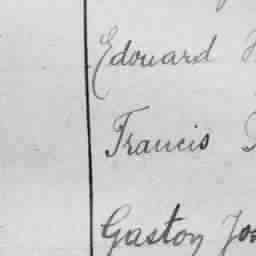 Edouard
Francis
Gaston